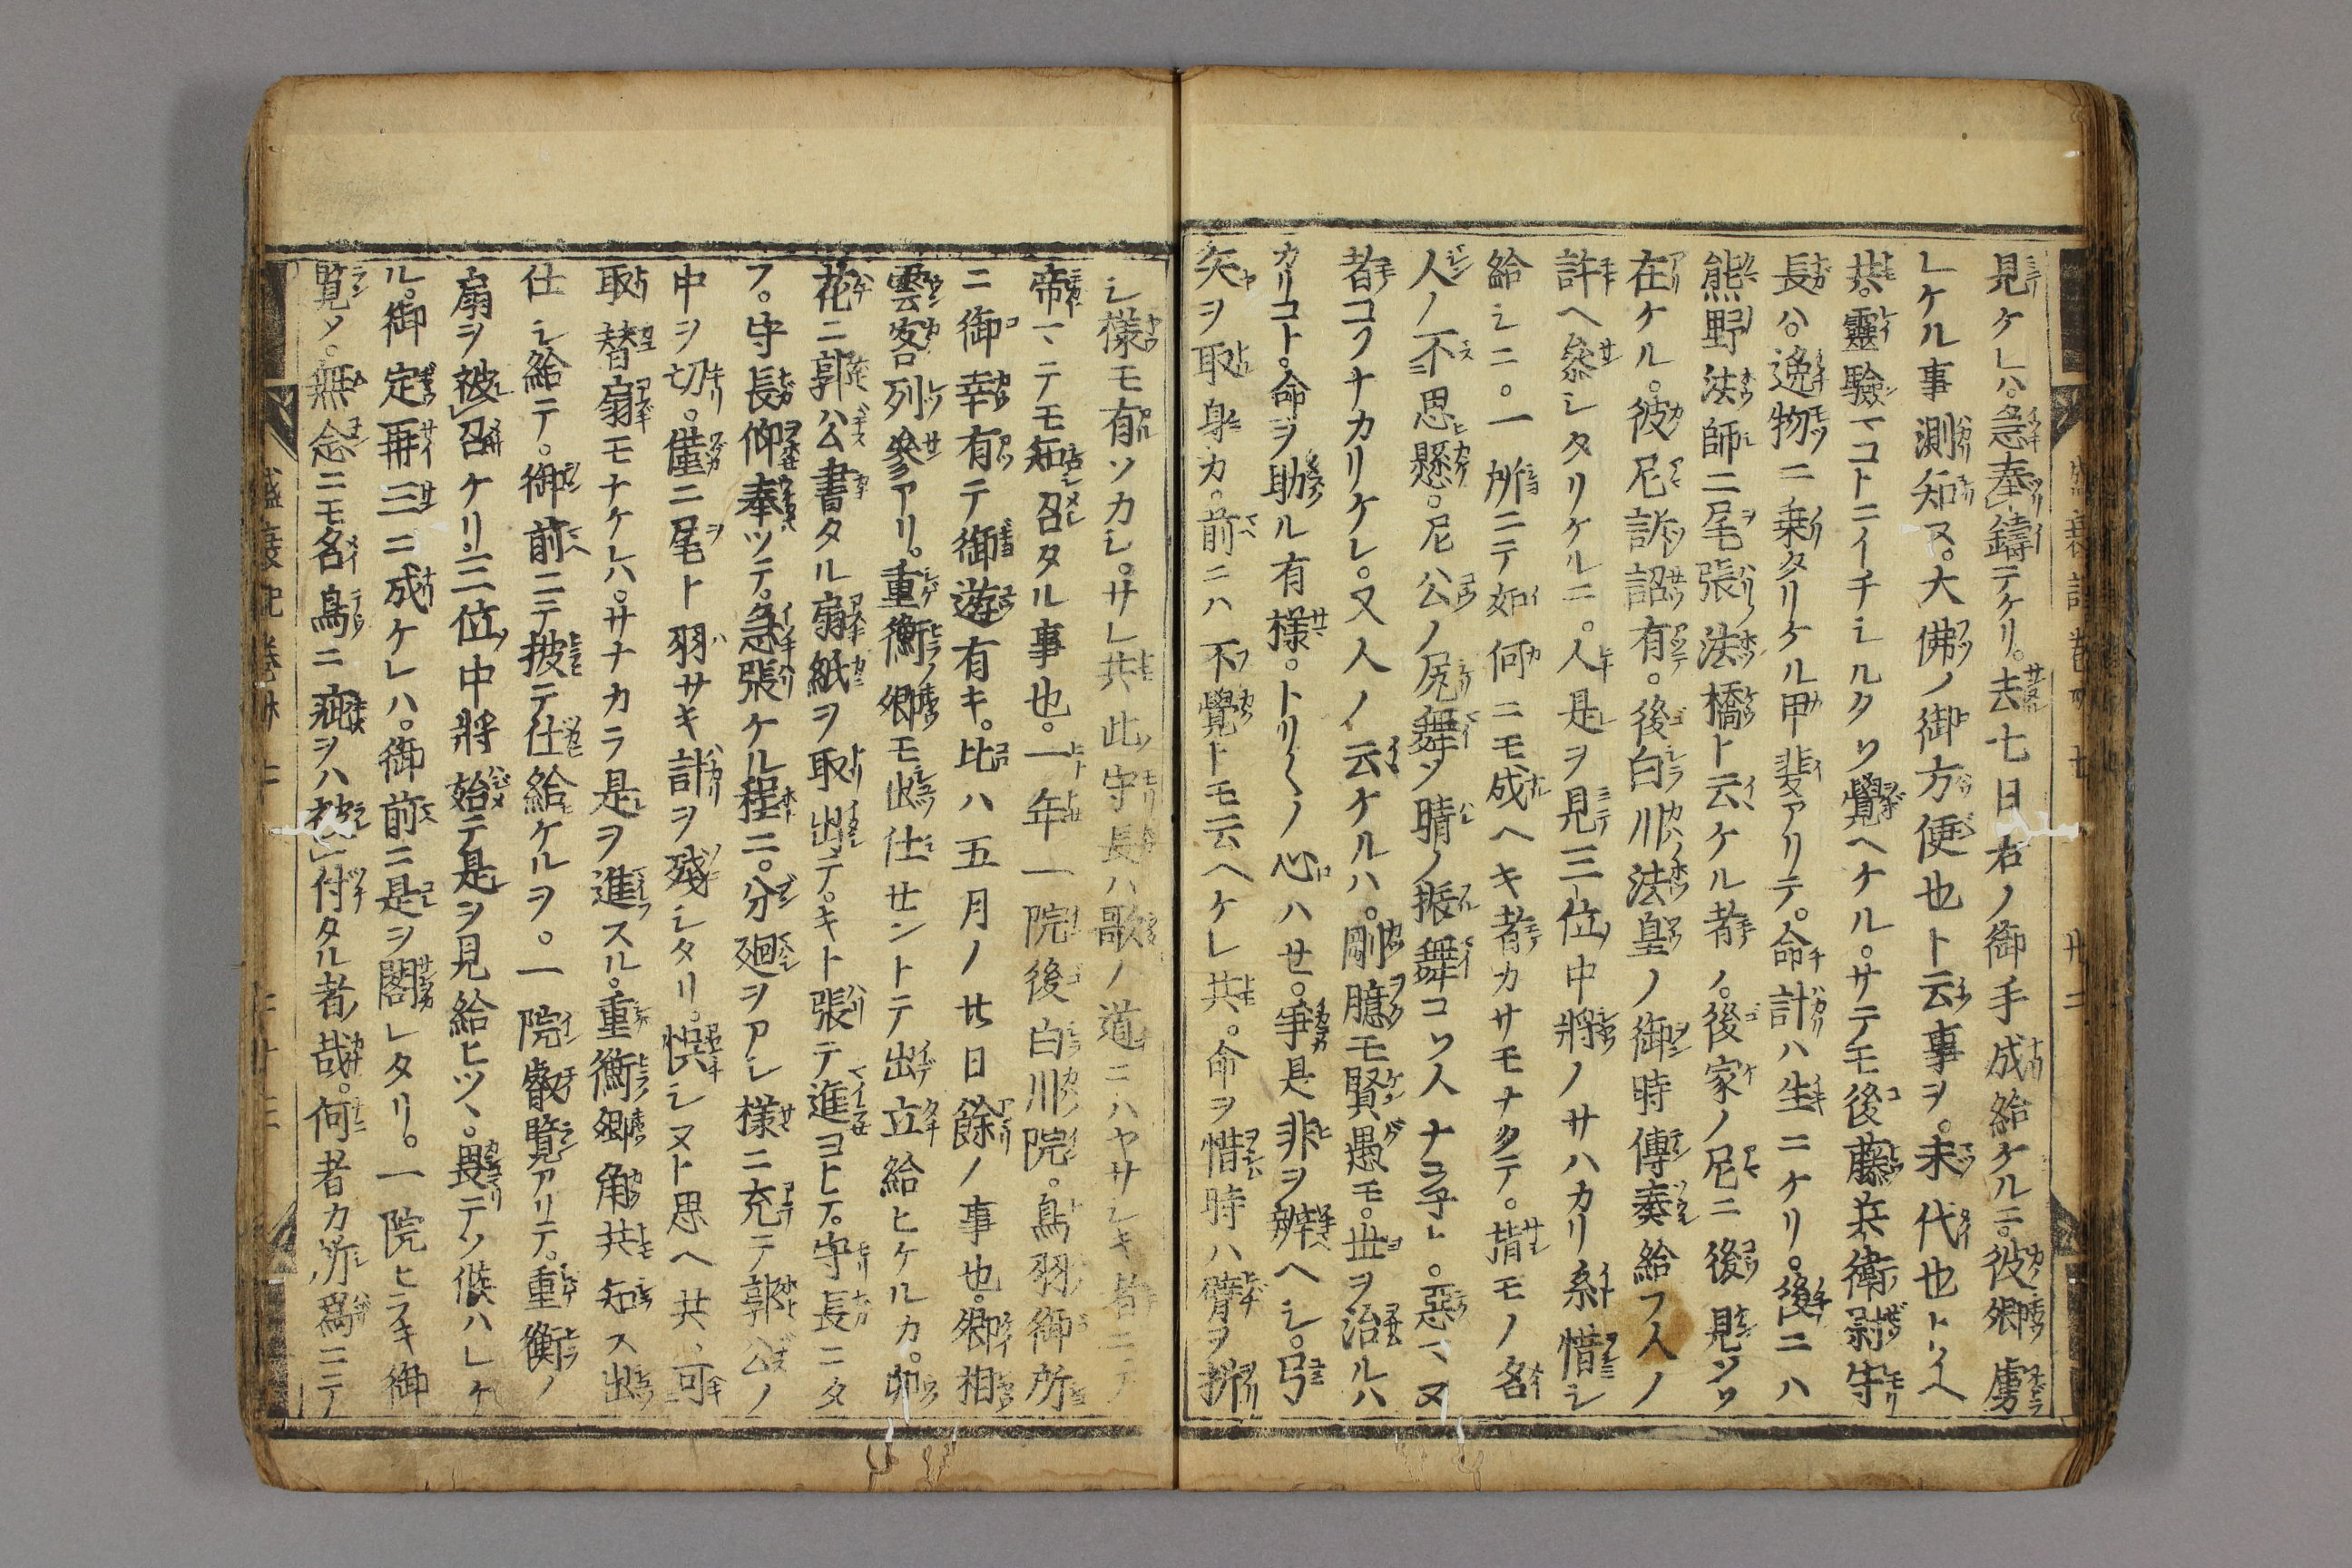 見ケレハ。急奉鑄テケリ。去七日右ノ御手成給ケルニ。彼卿虜
レケル事測知ヌ。大佛ノ御方便也ト云事ヲ。末代也トイヘ
共。靈驗マコトニイチシルクソ覺ヘケル。サテモ後藤兵衞尉守
長ハ。逸物ニ乗タリケル甲斐アリテ。命計ハ生ニケリ。後ニハ
熊野法師ニ尾張法橋ト云ケル者ノ。後家ノ尼ニ後見シツヽ
在ケル。彼尼訴詔有。後白川法皇ノ御時傳奏給フ人ノ
許ヘ參レタリケルニ。人是ヲ見テ三位中將ノサハカリ糸惜シ
給シニ。一所ニテ如何ニモ成ヘキ者カサモナクテ。指モノ名
人ノ不思懸。尼公ノ尻舞ソ晴ノ振舞コソ人ナヲ子ト。惡マヌ
者コソナカリケレ。又人ノ云ケルハ。剛臆モ賢愚モ。世ヲ治ルハ
カリコト。命ヲ助ル有様。トリ〱ノ心ハセ。爭是非ヲ辨ヘシ。弓
矢ヲ取身カ。前ニハ不覺トモ云ヘケレ共。命ヲ惜時ハ臂ヲ折
シ樣モ有ソカシ。サレ共此守長ハ歌ノ道ニハヤサシキ者ニテ
帝マテモ知召タル事也。一年一院後白川院。鳥羽御所
ニ御幸有テ御遊有キ。比ハ五月ノ廿日餘ノ事也。卿相
雲客列參アリ。重衡卿モ出仕せントテ出立給ヒケルカ。卯
花ニ郭公書タル扇紙ヲ取出テ。キト張テ進ヨトテ。守長ニタ
フ。守長仰奉ツテ。急張ケル程ニ。分廻ヲアシ樣ニ充テ郭公ノ
中ヲ切。僅ニ尾ト羽サキ計ヲ殘シタリ。悞シヌト思ヘ共、可
取替扇モナケレハ。サナカラ是ヲ進スル。重衡卿角共知ス出
仕シ給テ。御前ニテ披テ仕給ケルヲ。一院叡覽アリテ。重衡ノ
扇ヲ被召ケリ。三位中將始テ是ヲ見給ヒツヽ。畏テソ候ハレケ
ル。御定再三ニ成ケレハ。御前ニ是ヲ閣レタリ。一院ヒラキ御
覽メ。無念ニモ名鳥ニ疵ヲハ被付タル者哉。何者カ所爲ニテ